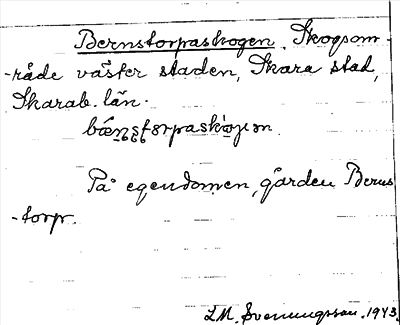 Bernstorpaskogen. Skogsom-
-råde väster staden, Skara stad,
Skarab. län.
På egendomen, gården Berns
-torp.
L. M. Svenungsson. 1943.